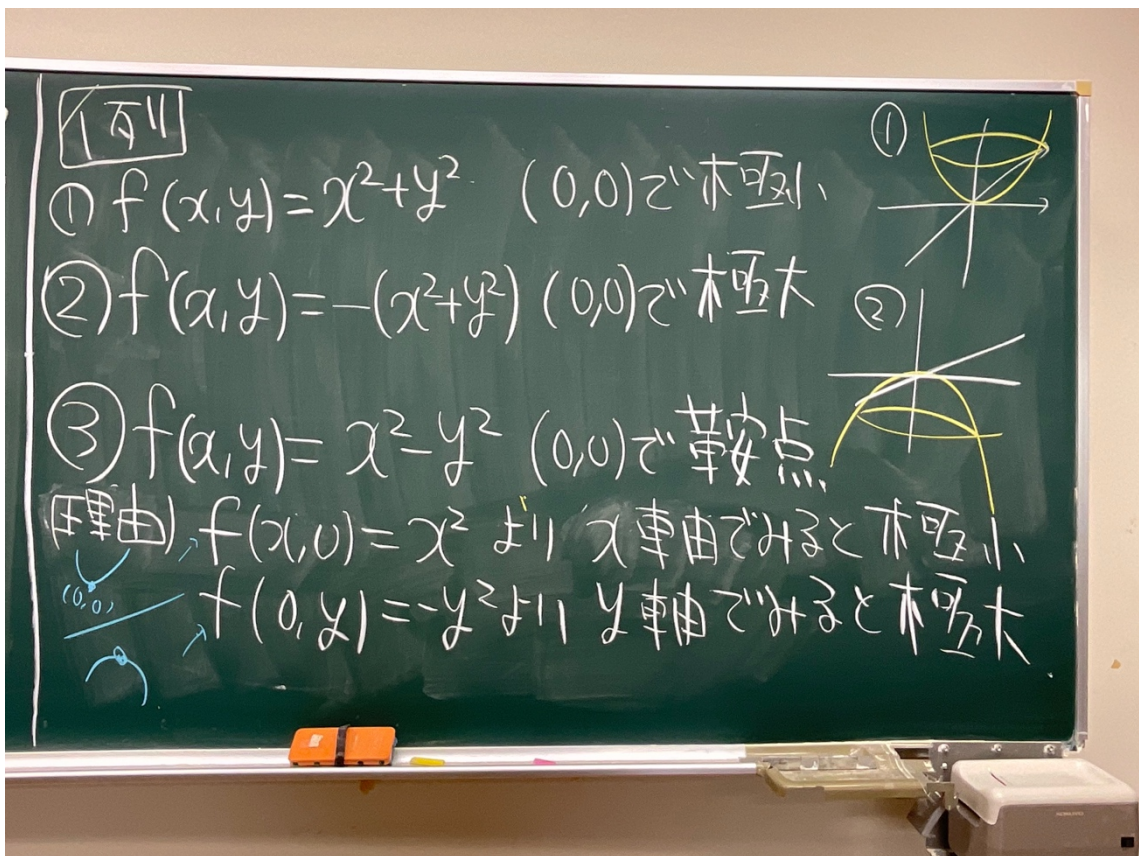 例
① f(x,y)=x²+y² (0,0)で極小
② f(x,y)=-(x²+y²) (0,0)で極大
③ f(x,y)=x²-y² (0,0)で鞍点
(理由) f(x,0)=x² より x軸でみると極小
f(0,y)=-y²より y軸でみると極大
(0,0)
①
②